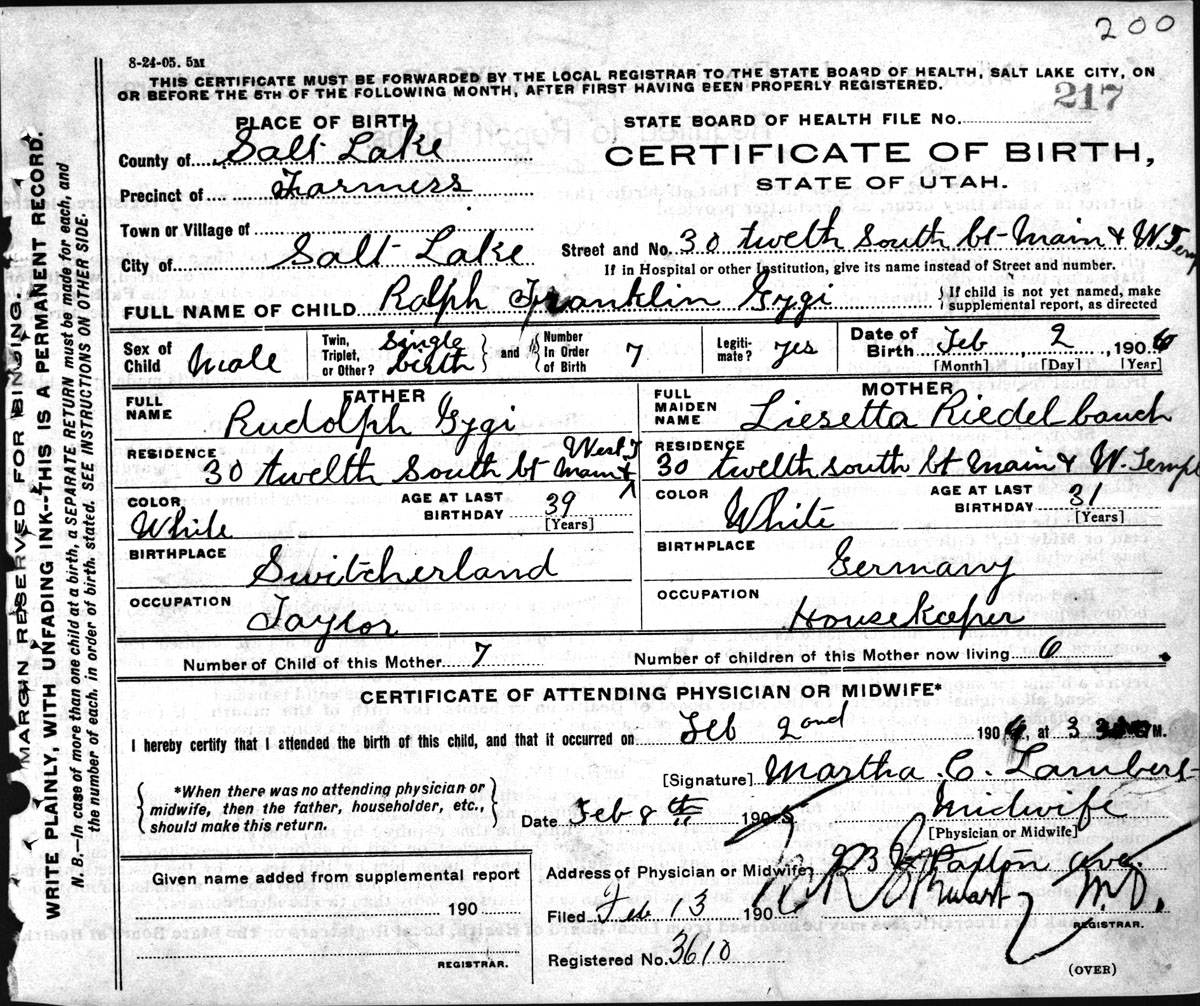 200
8-24-05. 5M
THIS CERTIFICATE MUST BE FORWARDED BY THE LOCAL REGISTRAR TO THE STATE BOARD OF HEALTH, SALT LAKE CITY, ON
OR BEFORE THE 5TH OF THE FOLLOWING MONTH, AFTER FIRST HAVING BEEN PROPERLY REGISTERED.
217
PLACE OF BIRTH
STATE BOARD OF HEALTH FILE No.
County of Salt Lake
CERTIFICATE OF BIRTH,
Precinct of Farmers
STATE OF UTAH.
Town or Village of
City of Salt Lake
Street and No. 30 twelth South bt Main & W. Temp
If in Hospital or other Institution, give its name instead of Street and number.
FULL NAME OF CHILD Ralph Franklin Gygi
{ If child is not yet named, make
supplemental report, as directed
Sex of
Child Male
Twin,
Triplet,
or Other? Single
birth } and {
Number
In Order
of Birth 7
Legiti-
mate? yes
Date of
Birth Feb 2 1906
[Month] [Day] [Year]
FATHER
FULL
NAME Rudolph Gygi
MOTHER
FULL
MAIDEN
NAME Liesetta Riedelbauch
RESIDENCE West T
30 twelth South bt Main &
RESIDENCE
30 twelth south bt Main & W. Templ
COLOR
White
AGE AT LAST
BIRTHDAY 39
[Years]
COLOR
White
AGE AT LAST
BIRTHDAY 31
[Years]
BIRTHPLACE
Switcherland
BIRTHPLACE
Germany
OCCUPATION
Taylor
OCCUPATION
Housekeeper
Number of Child of this Mother 7
Number of children of this Mother now living 6
CERTIFICATE OF ATTENDING PHYSICIAN OR MIDWIFE*
I hereby certify that I attended the birth of this child, and that it occurred on Feb 2ond 190, at 3 M.
{ *When there was no attending physician or
midwife, then the father, householder, etc.,
should make this return. }
[Signature] Martha C. Lambert
Date Feb 8th 190
Midwife
[Physician or Midwife]
Address of Physician or Midwife Paxton ave.
Given name added from supplemental report
190
REGISTRAR.
Filed Feb 13 190
M.D.
REGISTRAR.
Registered No. 3610
(OVER)
MARGIN RESERVED FOR BINDING.
WRITE PLAINLY, WITH UNFADING INK--THIS IS A PERMANENT RECORD.
N. B.—In case of more than one child at a birth, a SEPARATE RETURN must be made for each, and
the number of each, in order of birth, stated. SEE INSTRUCTIONS ON OTHER SIDE.